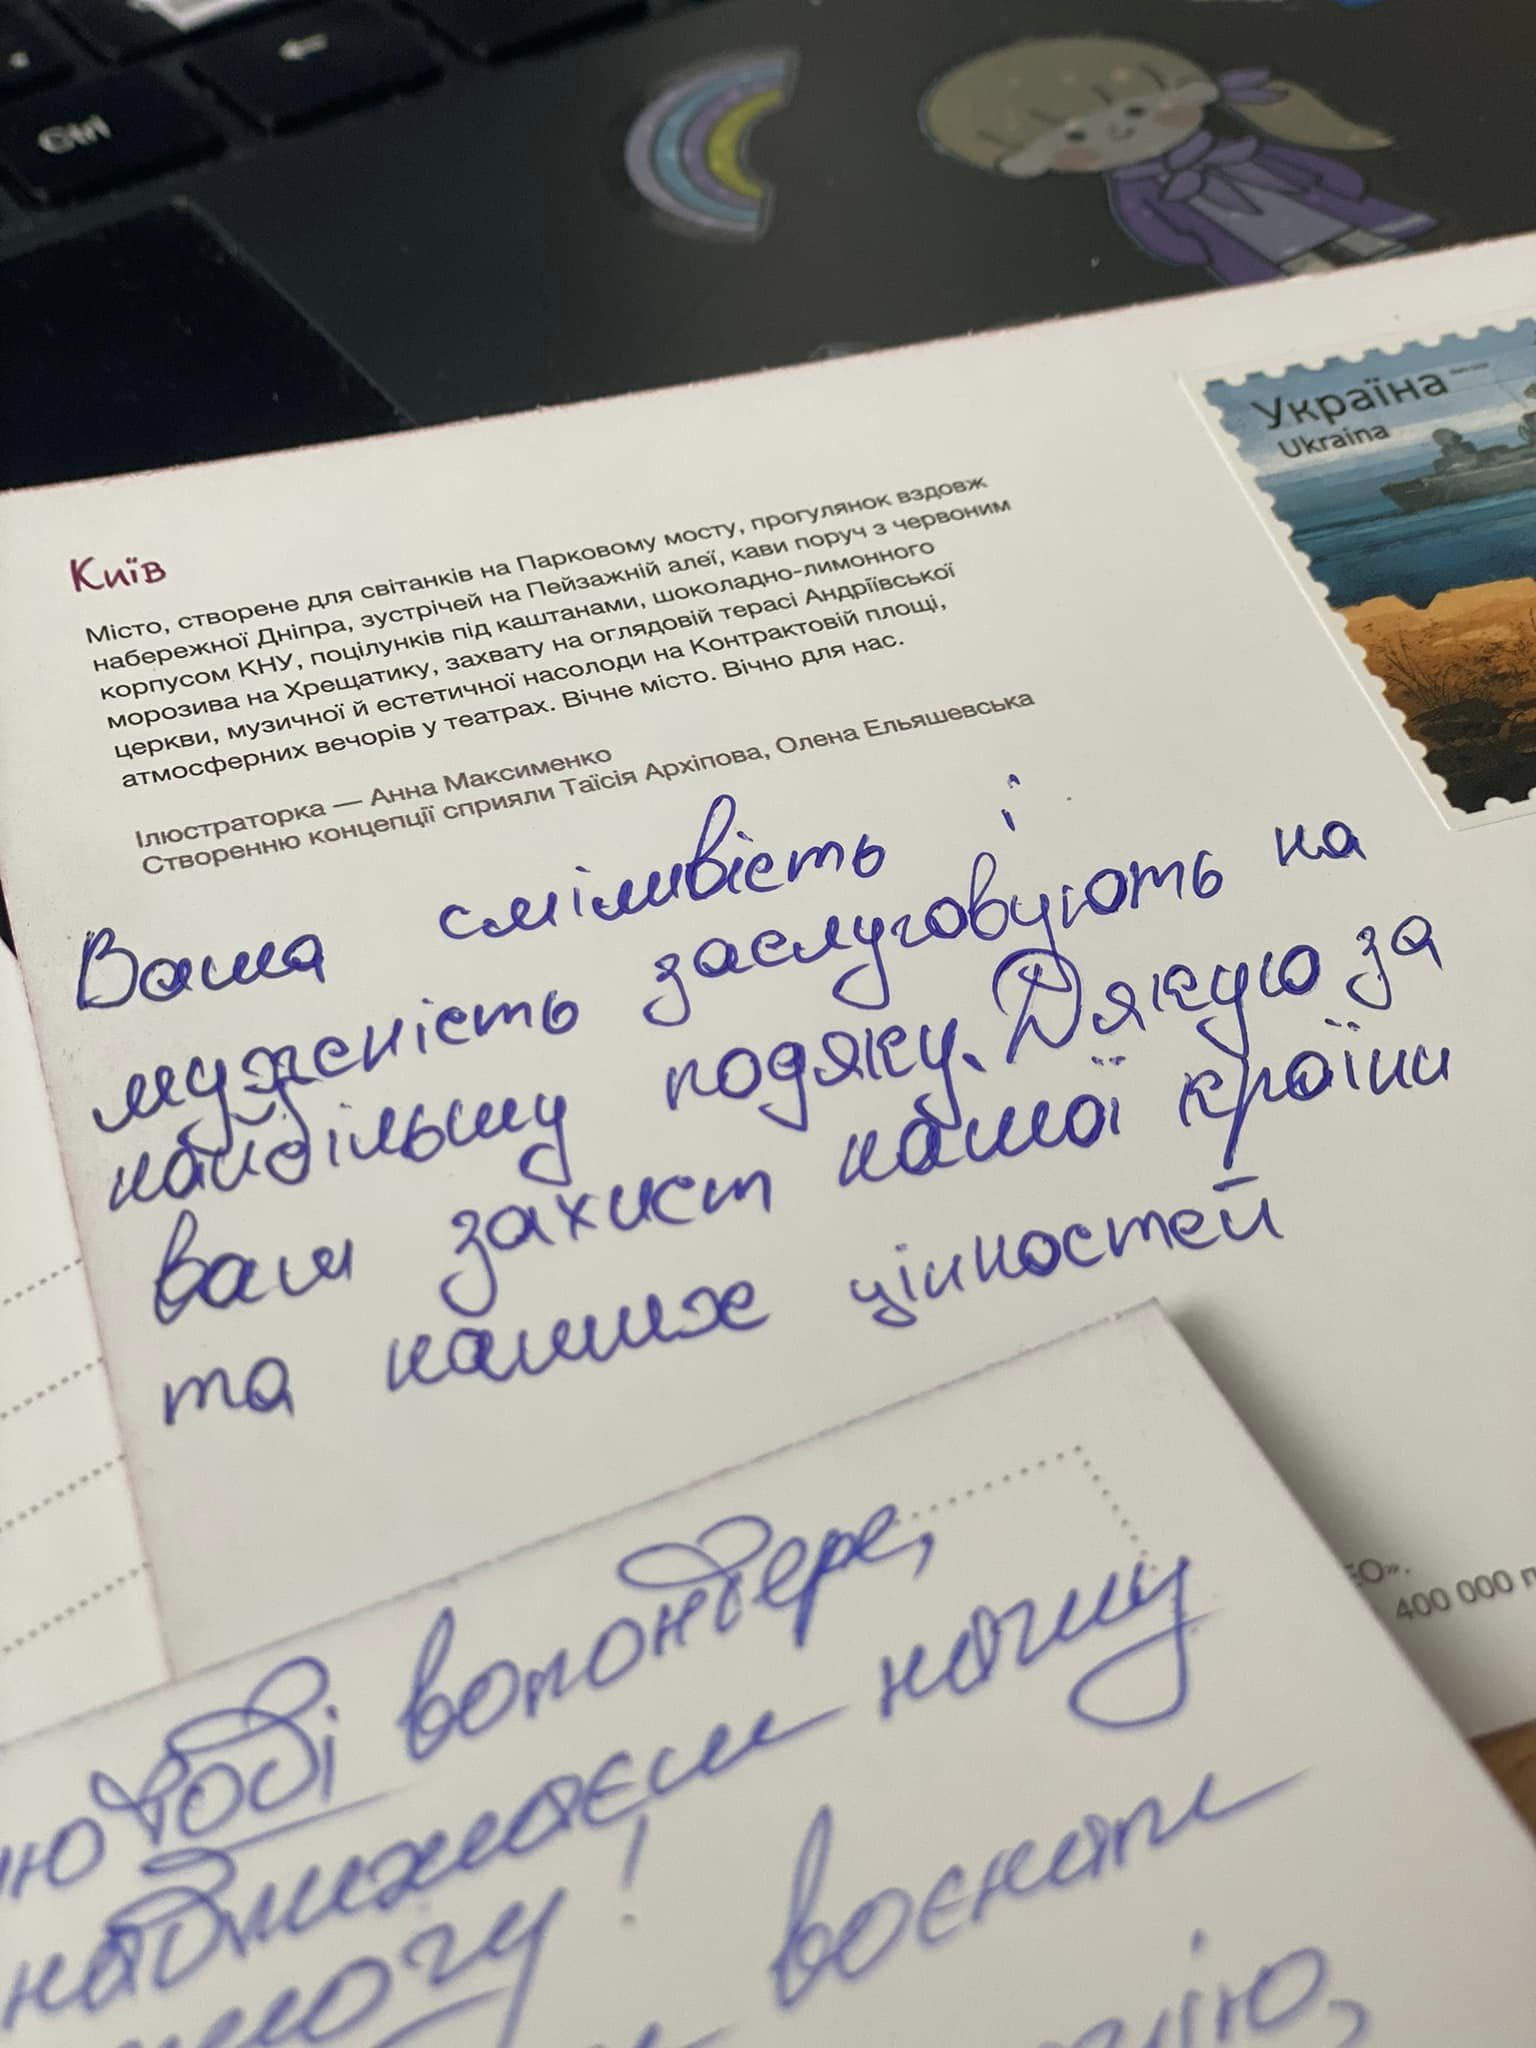 Ctrl
Україна
Ukraina
Київ
Місто, створене для світанків на Парковому мосту, прогулянок вздовж
набережної Дніпра, зустрічей на Пейзажній алеї, кави поруч з червоним
корпусом КНУ, поцілунків під каштанами, шоколадно-лимонного
морозива на Хрещатику, захвату на оглядовій терасі Андріївської
церкви, музичної й естетичної насолоди на Контрактовій площі,
атмосферних вечорів у театрах. Вічне місто. Вічно для нас.
Ілюстраторка — Анна Максименко
Створенню концепції сприяли Таїсія Архіпова, Олена Ельяшевська
Ваша сміливість і
мужність заслуговують на
найбільшу подяку. Дякую за
ваш захист нашої країни
та наших цінностей
ЕО».
400 000 п
тобі волонтере,
наближаєш нашу
!
воєнти